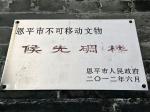 恩平市不可移动文物
侯先碉楼
恩平市人民政府
二〇一二年六月